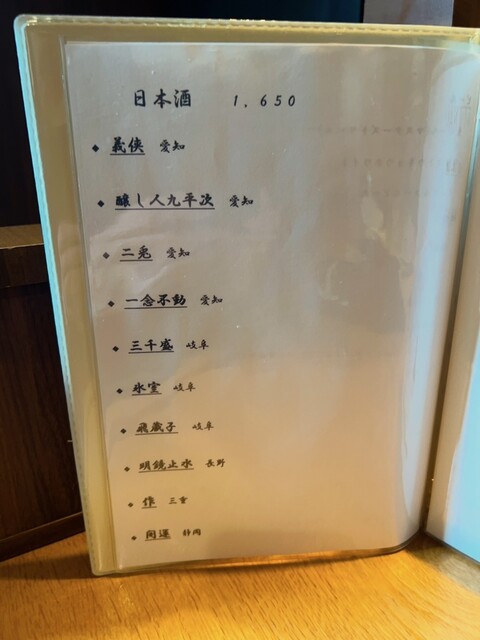 日本酒 1,650
◆ 義侠 愛知
◆ 醸し人九平次 愛知
◆ 二兎 愛知
◆ 一念不動 愛知
◆ 三千盛 岐阜
◆ 氷室 岐阜
◆ 飛騨子 岐阜
◆ 明鏡止水 長野
◆ 作 三重
◆ 開運 静岡